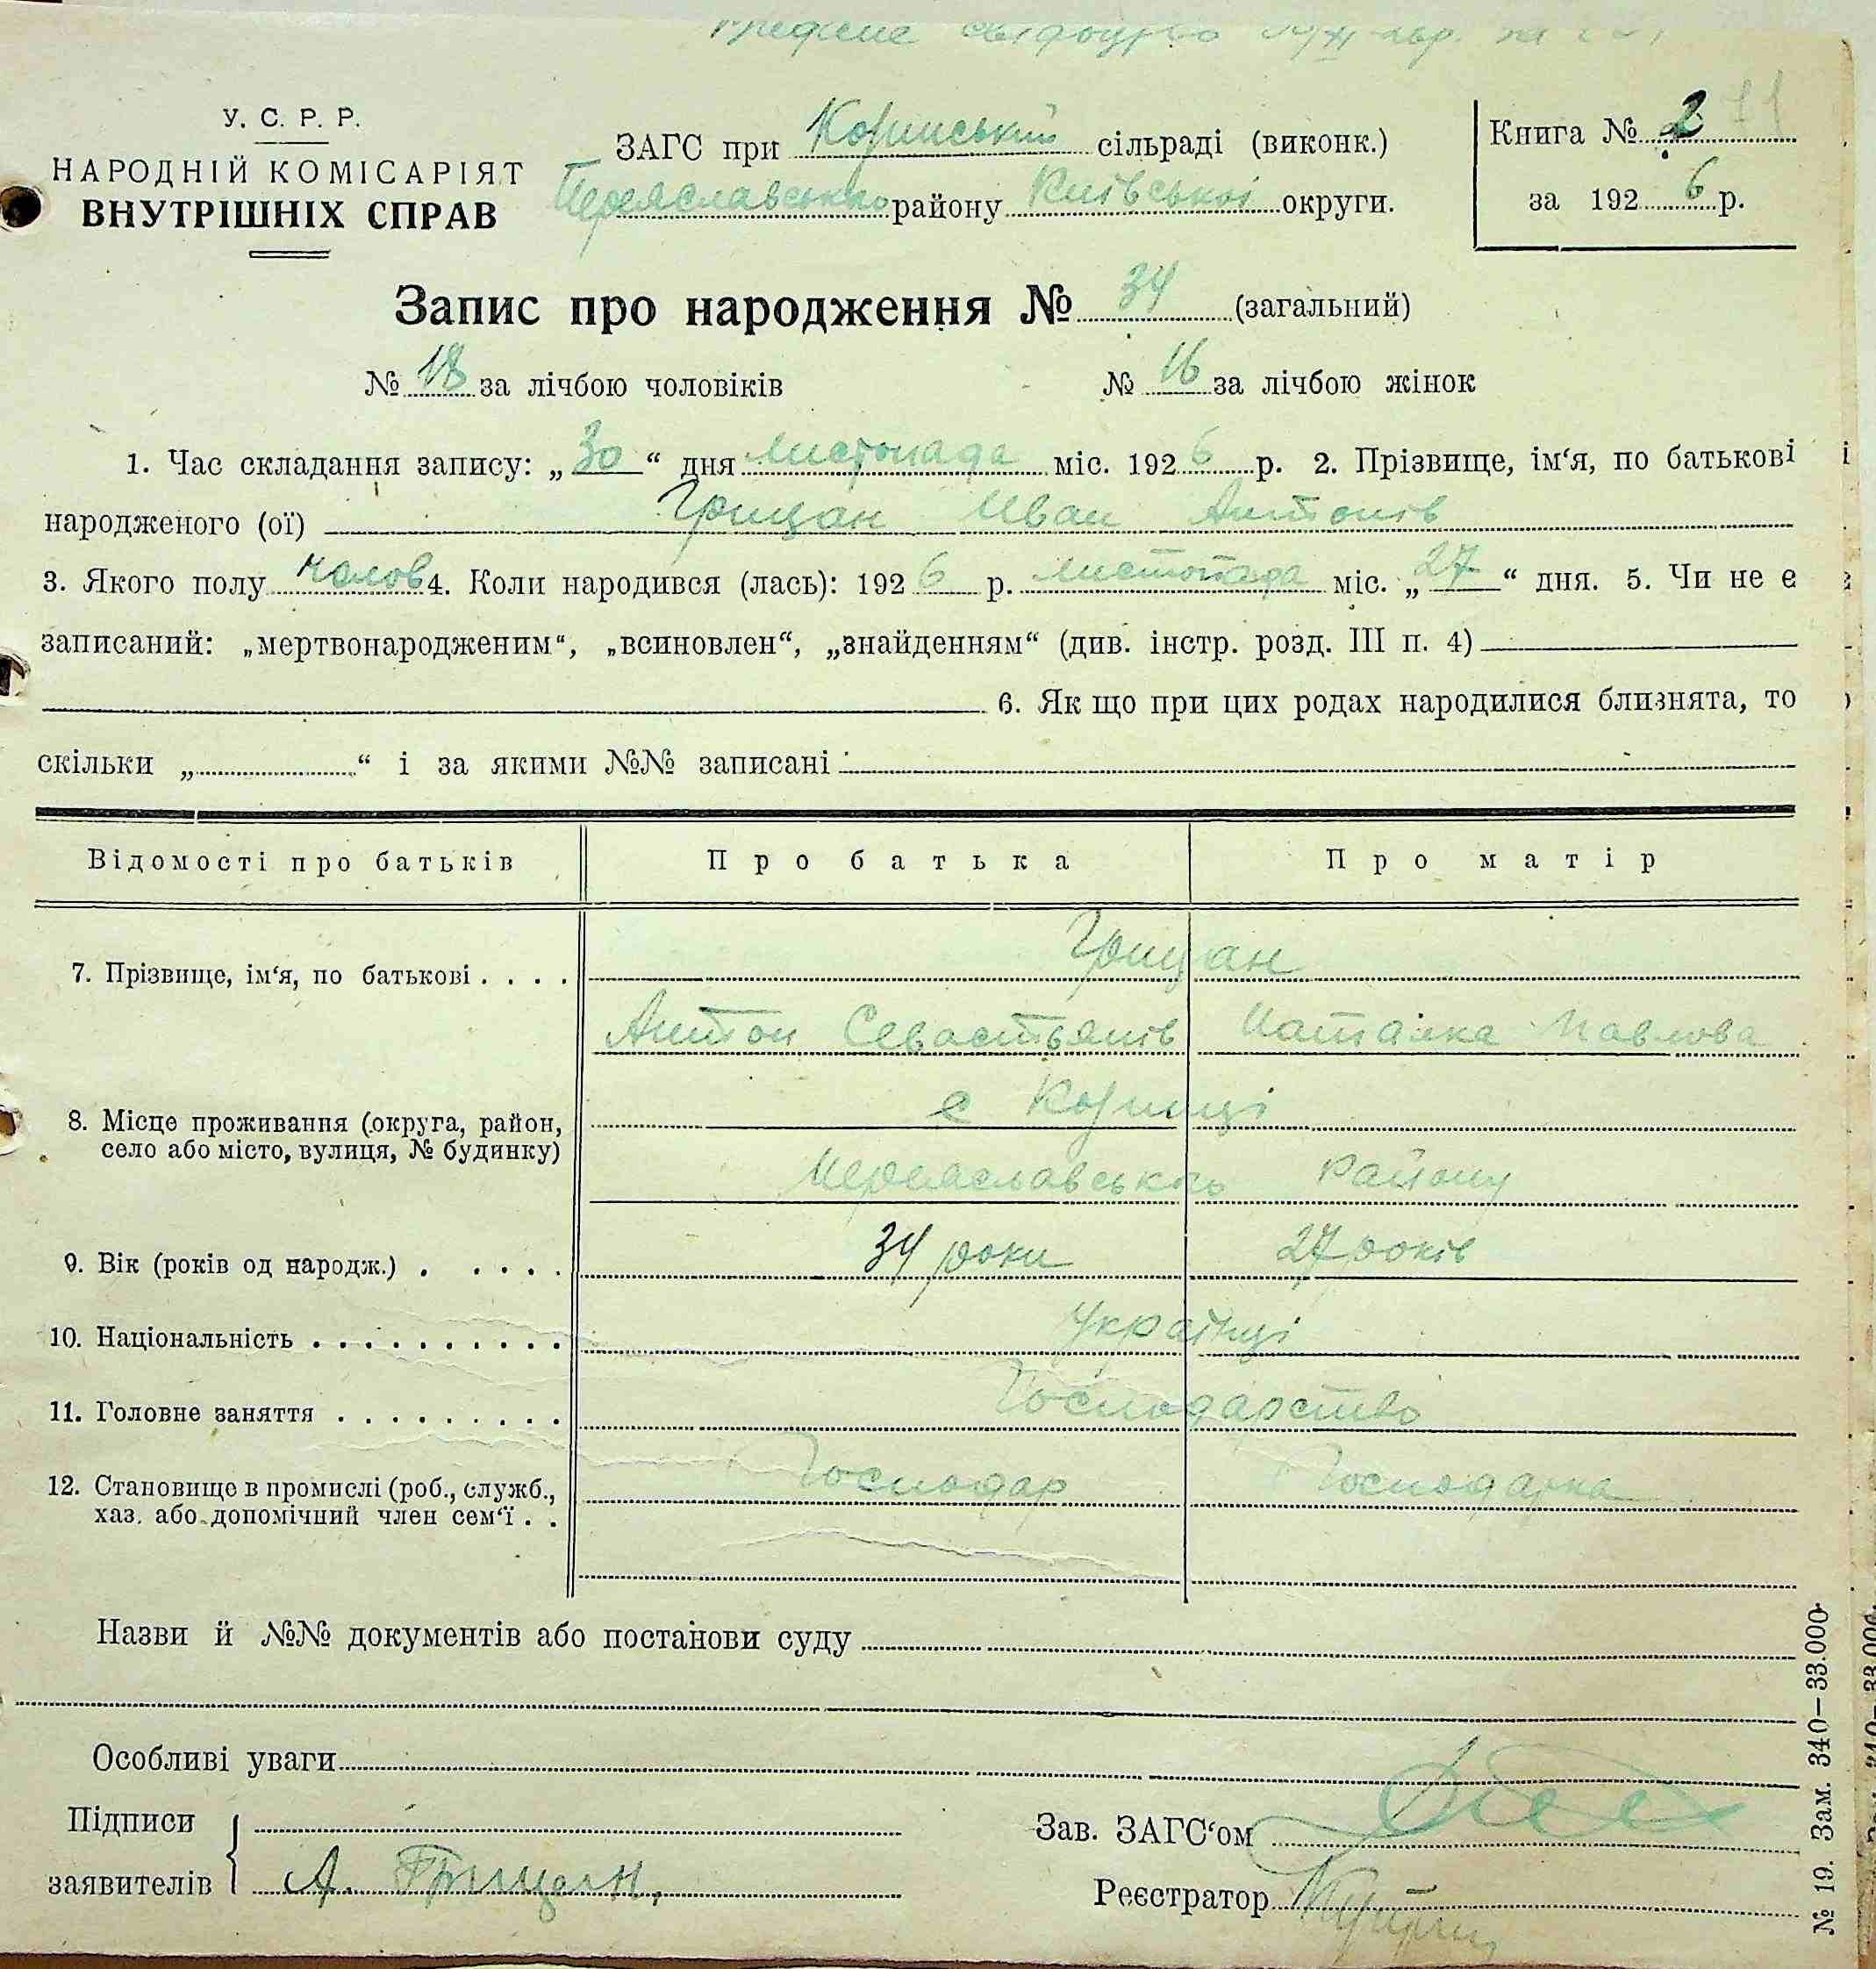 У. С. Р. Р.
НАРОДНІЙ КОМІСАРІЯТ
ВНУТРІШНІХ СПРАВ
ЗАГС при сільраді (виконк.)
Переяславського району Київської округи.
Книга № 2
за 1926 р.
Запис про народження № 34 (загальний)
№ 18 за лічбою чоловіків № 16 за лічбою жінок
1. Час складання запису: „30“ дня листопада міс. 1926 р. 2. Прізвище, ім‘я, по батькові
народженого (ої) Грицан Иван Антонів
3. Якого полу чолов 4. Коли народився (лась): 1926 р. листопада міс. „27“ дня. 5. Чи не є
записаний: „мертвонародженим“, „всиновлен“, „знайденням“ (див. інстр. розд. III п. 4)
6. Як що при цих родах народилися близнята, то
скільки „ “ і за якими №№ записані
Відомості про батьків Про батька Про матір
Грицан
7. Прізвище, ім‘я, по батькові . . . .
Антон Севастьянів Наталка Павлова
8. Місце проживання (округа, район,
село або місто, вулиця, № будинку)
Переяславського району
9. Вік (років од народж.) . . . . . 34 роки 27 років
10. Національність . . . . . . . . . . Українці
11. Головне заняття . . . . . . . . . Господарство
12. Становище в промислі (роб., служб., Господар Господарка
хаз. або допомічний член сем‘ї . .
Назви й №№ документів або постанови суду
Особливі уваги
Підписи
заявителів А. Грицан,
Зав. ЗАГС‘ом
Реєстратор
№ 19. Зам. 340—33.000.